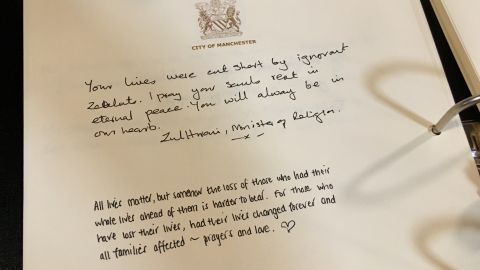 CITY OF MANCHESTER
Your lives were cut short by ignorant
I pray your souls rest in
eternal peace. You will always be in
our hearts.
Minister of Religion.
All lives matter, but somehow the loss of those who had their
whole lives ahead of them is harder to bear. For those who
have lost their lives, had their lives changed forever and
all families affected ~ prayers and love. ♡